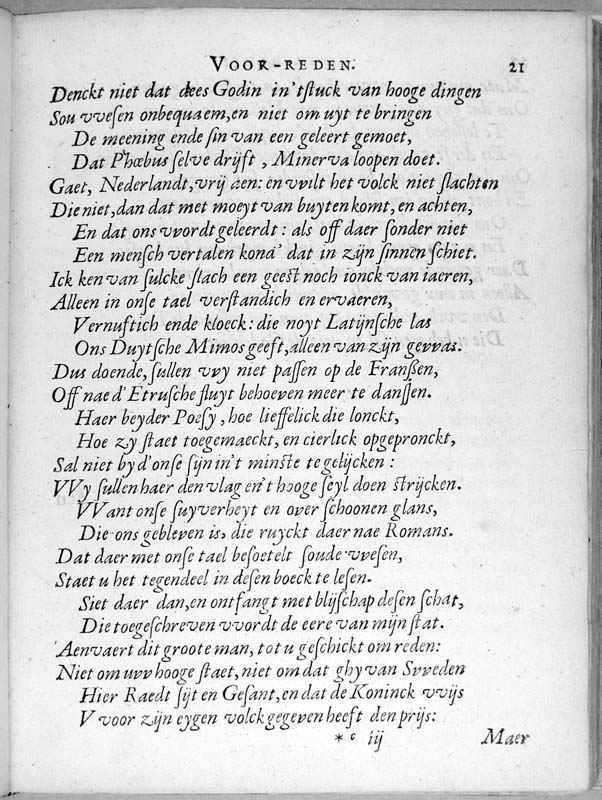 VOOR-REDEN. 21
Denckt niet dat dees Godin in'tſtuck van hooge dingen
Sou vveſen onbequaem, en niet om uyt te bringen
De meening ende ſin van een geleert gemoet,
Dat Phœbus ſelve drijft, Minerva loopen doet.
Gaet, Nederlandt, vrij aen: en vvilt het volck niet ſlachten
Die niet, dan dat met moeyt van buyten komt, en achten,
En dat ons vvordt geleerdt: als off daer ſonder niet
Een menſch vertalen kond' dat in zijn ſinnen ſchiet.
Ick ken van ſulcke ſlach een geeſt noch jonck van iaeren,
Alleen in onſe tael verſtandich en ervaeren,
Vernuftich ende kloeck: die noyt Latijnſche las
Ons Duytſche Mimos geeft, alleen van zijn gevvas.
Dus doende, ſullen vvy niet paſſen op de Franſſen,
Off nae d'Etruſche fluyt behoeven meer te danſſen.
Haer beyder Poeſy, hoe lieffelick die lonckt,
Hoe zy ſtaet toegemaeckt, en cierlick opgepronckt,
Sal niet by d'onſe ſijn in't minſte te gelijcken:
VVy ſullen haer den vlag en't hooge ſeyl doen ſtrijcken.
VVant onſe ſuyverheyt en over ſchoonen glans,
Die ons gebleven is, die ruyckt daer nae Romans.
Dat daer met onſe tael beſoetelt ſoude vveſen,
Staet u het tegendeel in deſen boeck te leſen.
Siet daer dan, en ontfangt met blijſchap deſen ſchat,
Die toegeſchreven vvordt de eere van mijn ſtat.
Aenvaert dit groote man, tot u geſchickt om reden:
Niet om uvv hooge ſtaet, niet om dat ghy van Svveden
Hier Raedt ſijt en Geſant, en dat de Koninck vvijs
V voor zijn eygen volck gegeven heeft den prijs:
*c iij Maer